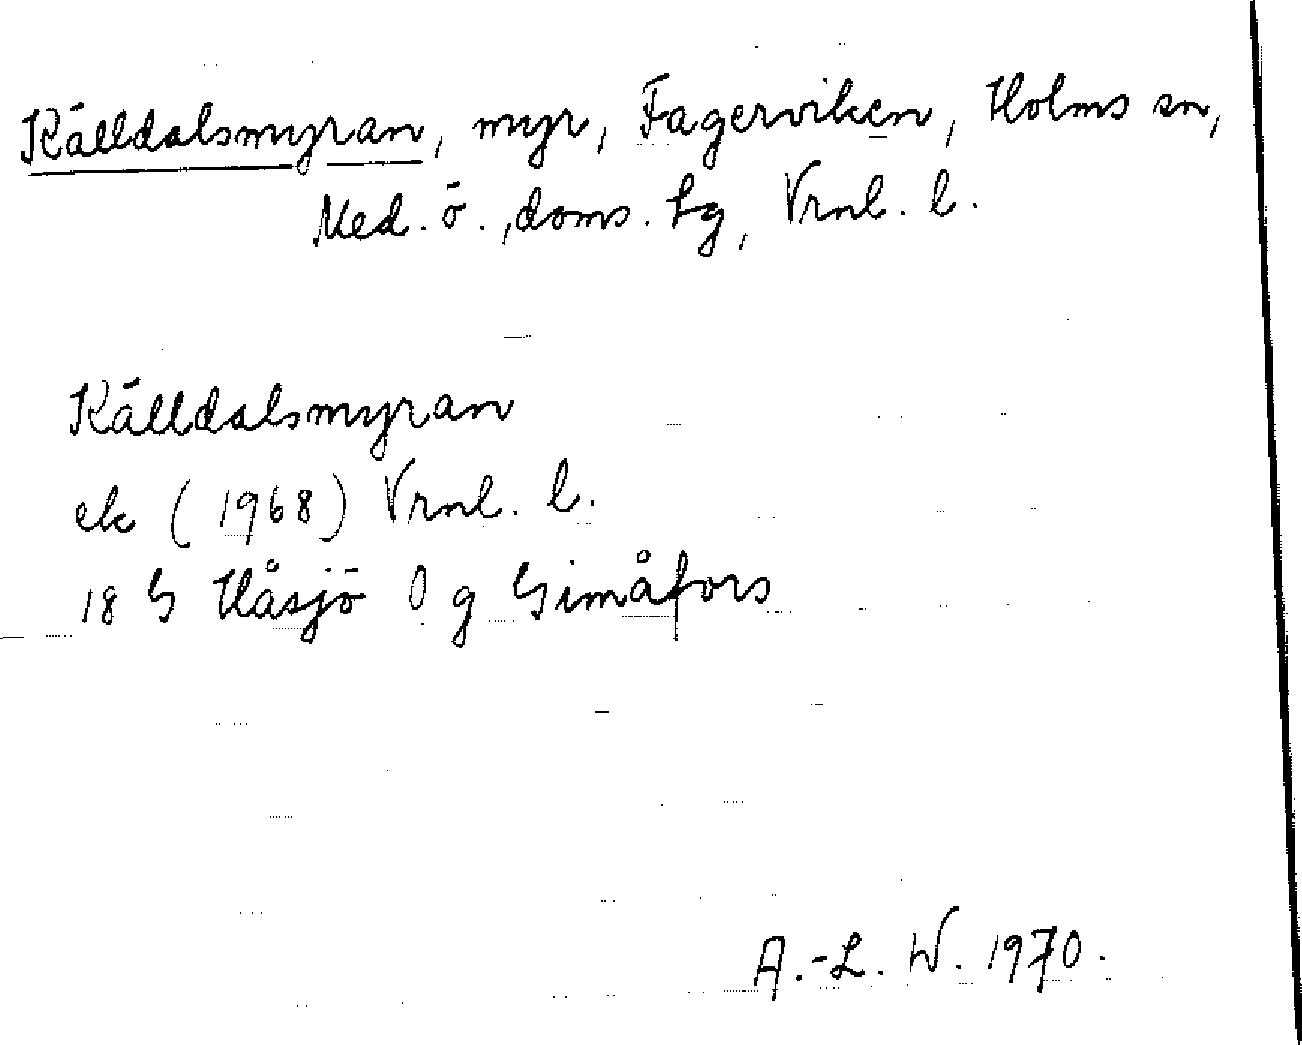 Källdalsmyran, myr, Fagerviken, Holms sn,
Med. ö., doms. tg, Vrnl. l.
Källdalsmyran
ek (1968) Vrnl. l.
18 G Håsjö 0 g Gimåfors
A.-L. W. 1970.